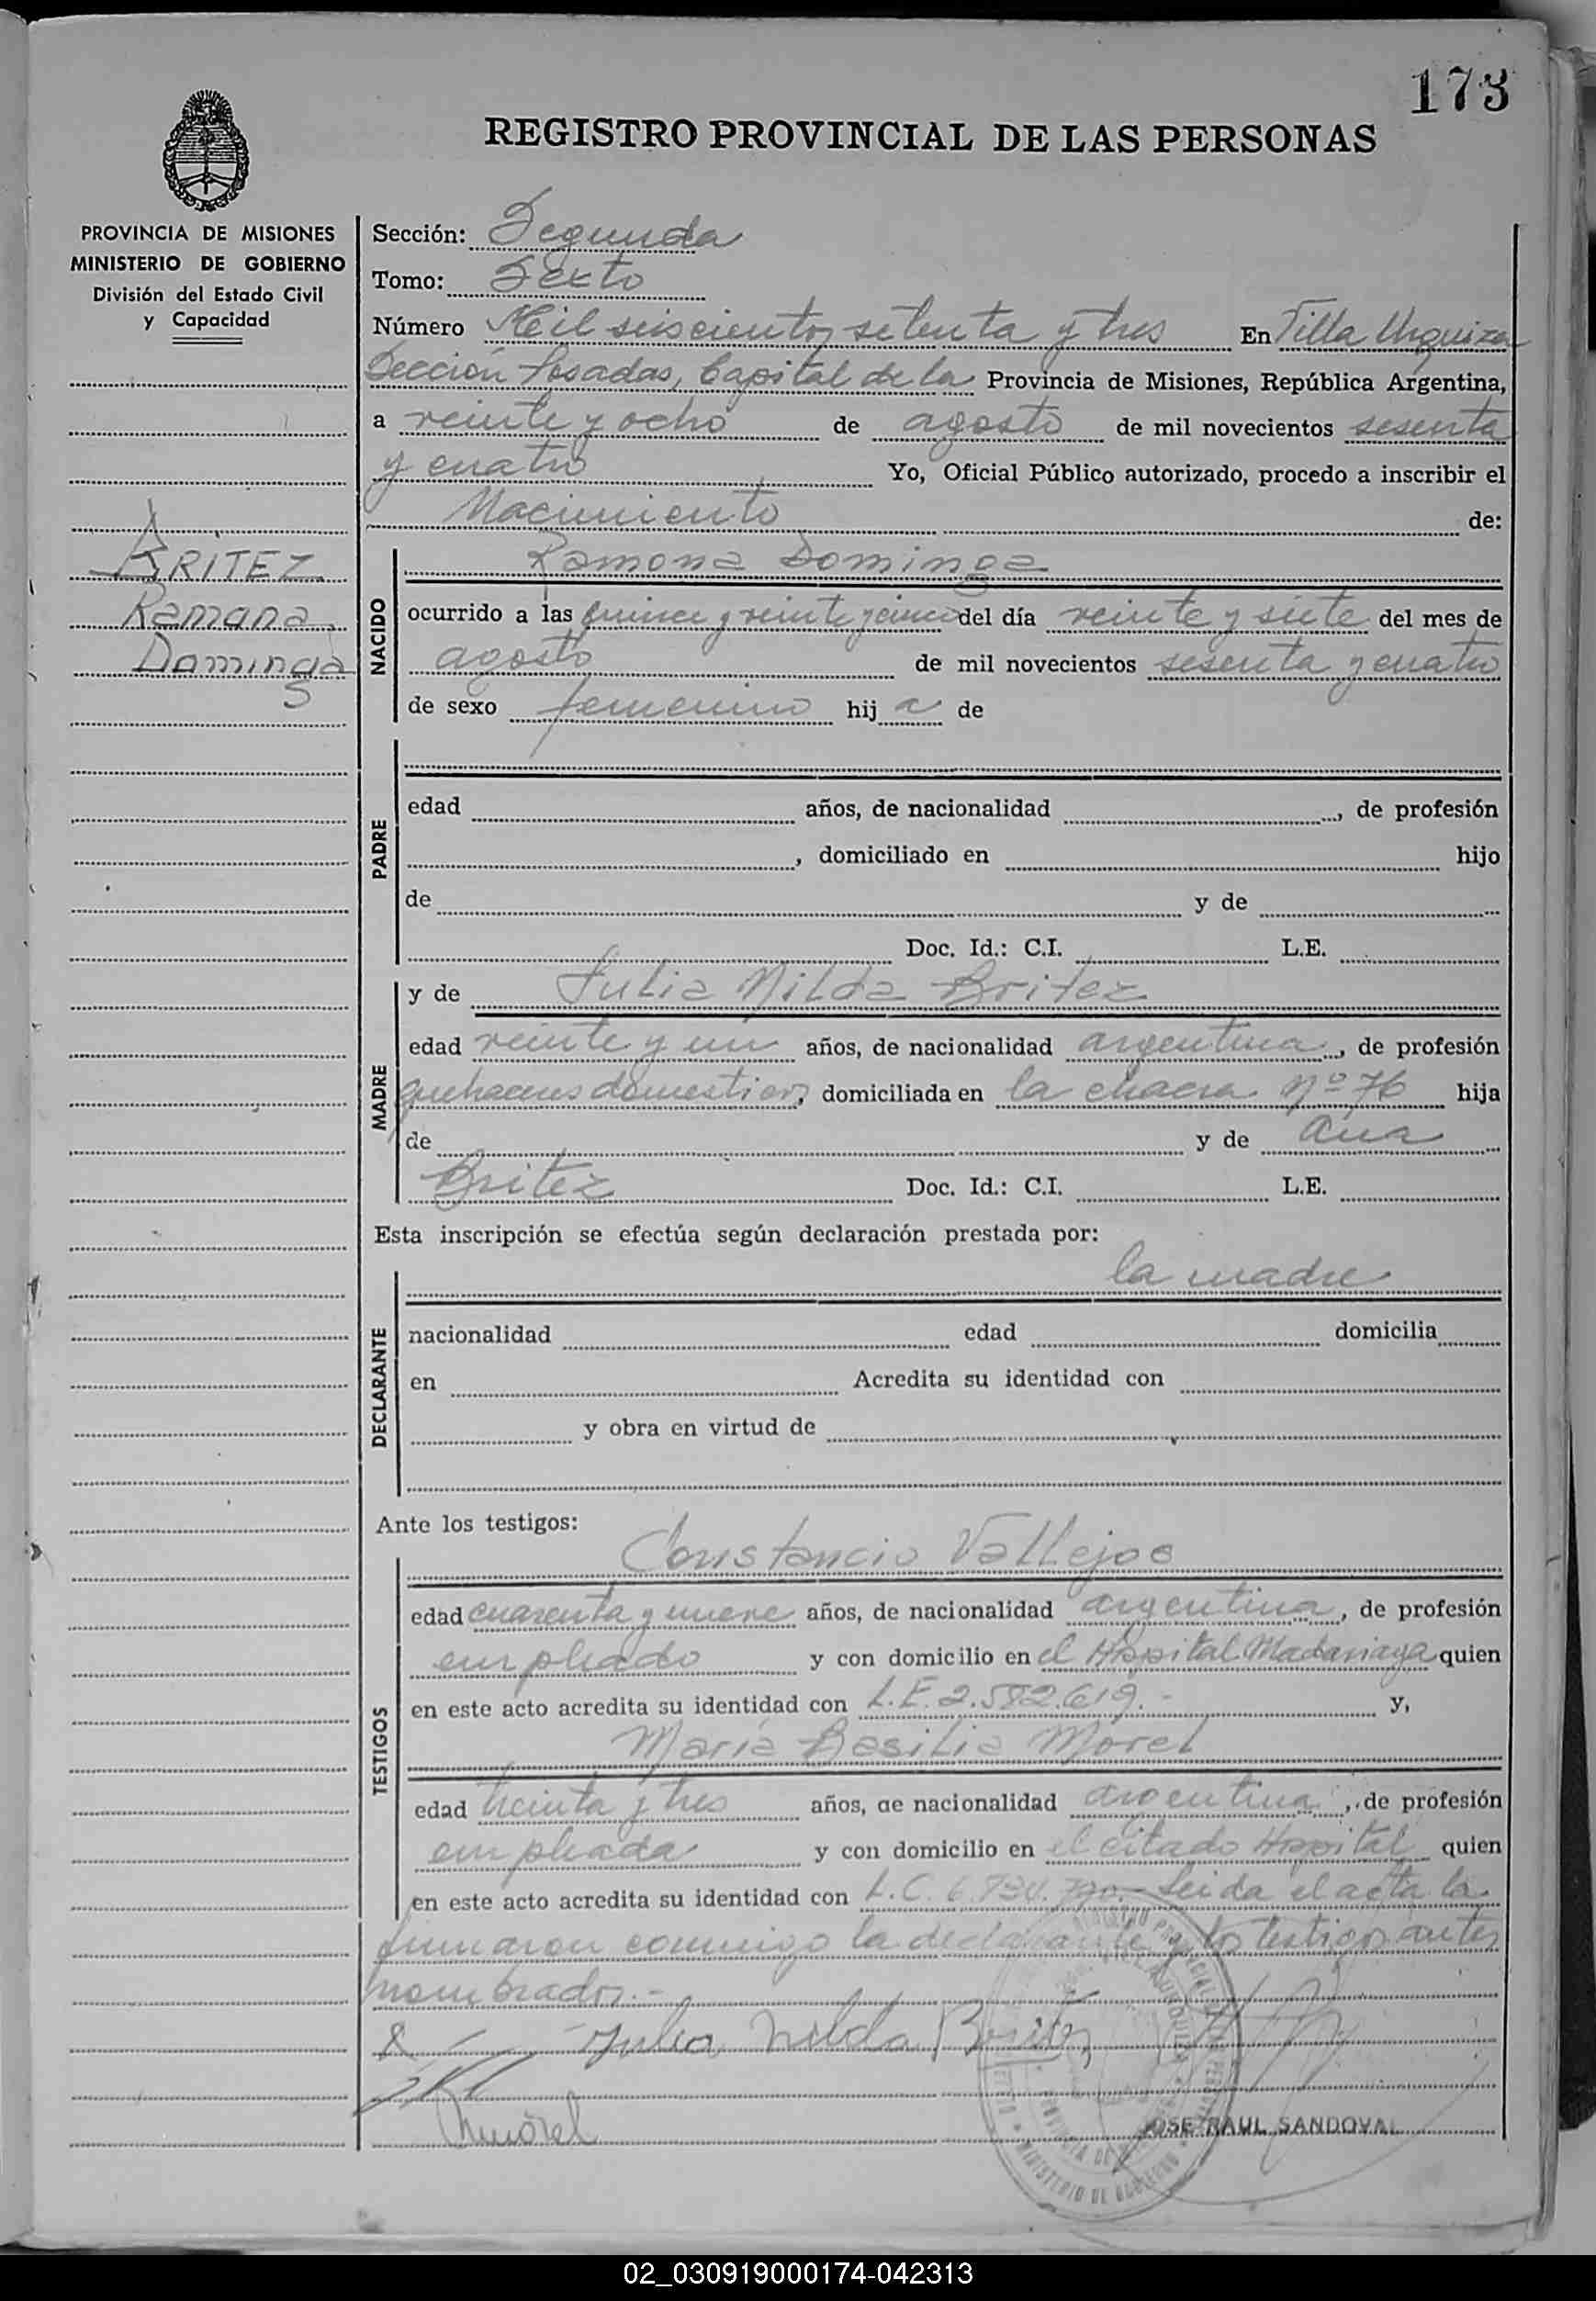 173
REGISTRO PROVINCIAL DE LAS PERSONAS
PROVINCIA DE MISIONES
MINISTERIO DE GOBIERNO
División del Estado Civil
y Capacidad
Sección: Segunda
Tomo: Sexto
Número Mil seiscientos setenta y tres En Villa Urquiza
Sección Posadas, Capital de la Provincia de Misiones, República Argentina,
a veinte y ocho de agosto de mil novecientos sesenta
y cuatro Yo, Oficial Público autorizado, procedo a inscribir el
Nacimiento de:
BRITEZ
Ramona
Dominga
NACIDO
Ramona Dominga
ocurrido a las quince y veinte y cinco del día veinte y siete del mes de
agosto de mil novecientos sesenta y cuatro
de sexo femenino hij a de
PADRE
edad años, de nacionalidad , de profesión
, domiciliado en hijo
de y de
Doc. Id.: C.I. L.E.
MADRE
y de Julia Nilda Britez
edad veinte y un años, de nacionalidad argentina, de profesión
quehaceres domesticos, domiciliada en la chacra Nº 76 hija
de y de Ana
Britez Doc. Id.: C.I. L.E.
Esta inscripción se efectúa según declaración prestada por:
la madre
DECLARANTE
nacionalidad edad domicilia
en Acredita su identidad con
y obra en virtud de
Ante los testigos:
TESTIGOS
Constancio Vallejos
edad cuarenta y nueve años, de nacionalidad argentina, de profesión
empleado y con domicilio en el Hospital Madariaga quien
en este acto acredita su identidad con L.E. 2.582.619.- y,
María Basilia Morel
edad treinta y tres años, de nacionalidad argentina, de profesión
empleada y con domicilio en el citado Hospital quien
en este acto acredita su identidad con L.C. Leida el acta la
firmaron conmigo la declarante y los testigos antes
nombrados.-
Julia Nilda Britez
Morel
JOSE RAUL SANDOVAL
MINISTERIO DE GOBIERNO
02_030919000174-042313